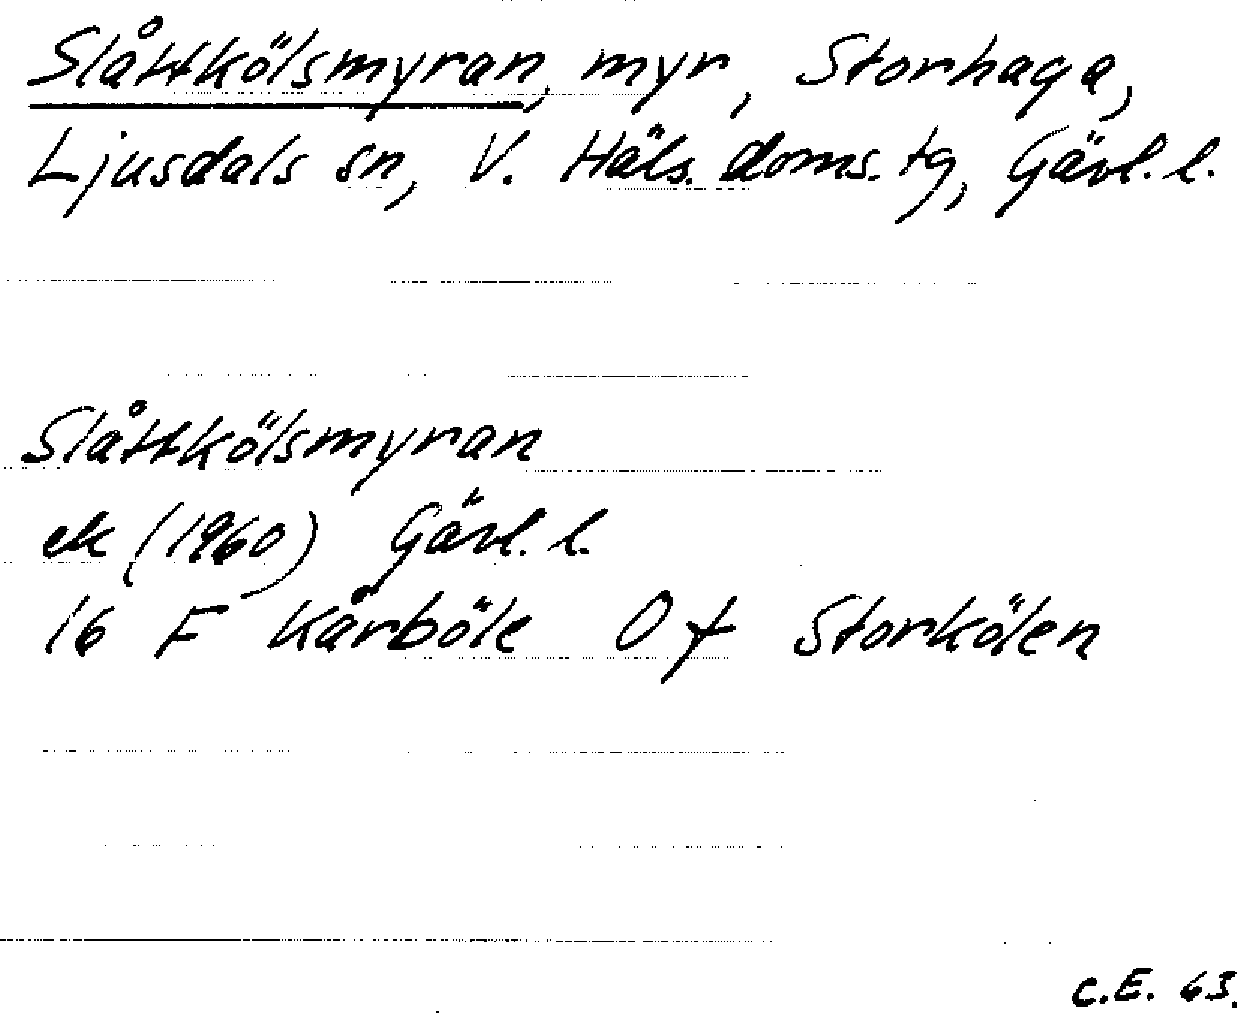 Slåttkölsmyran, myr, Storhaga,
Ljusdals sn, V. Häls. doms. tg, Gävl. l.
Slåttkölsmyran
ek (1960) Gävl. l.
16 F Kårböle 0 f Storkölen
C.E. 63.